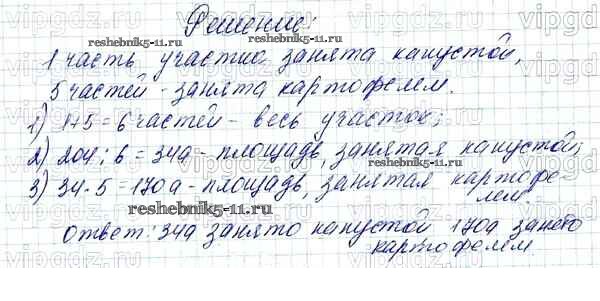 Решение:
reshebnik5-11.ru
1 часть участка занята капустой,
5 частей - занята картофелем.
1) 1+5=6 частей - весь участок;
2) 204:6=34а - площадь, занятая капустой;
reshebnik5-11.ru
3) 34·5=170а - площадь, занятая картофе-
лем.
reshebnik5-11.ru
Ответ: 34а занято капустой 170а занято
картофелем
reshebnik5-11.ru
vipgdz.ru